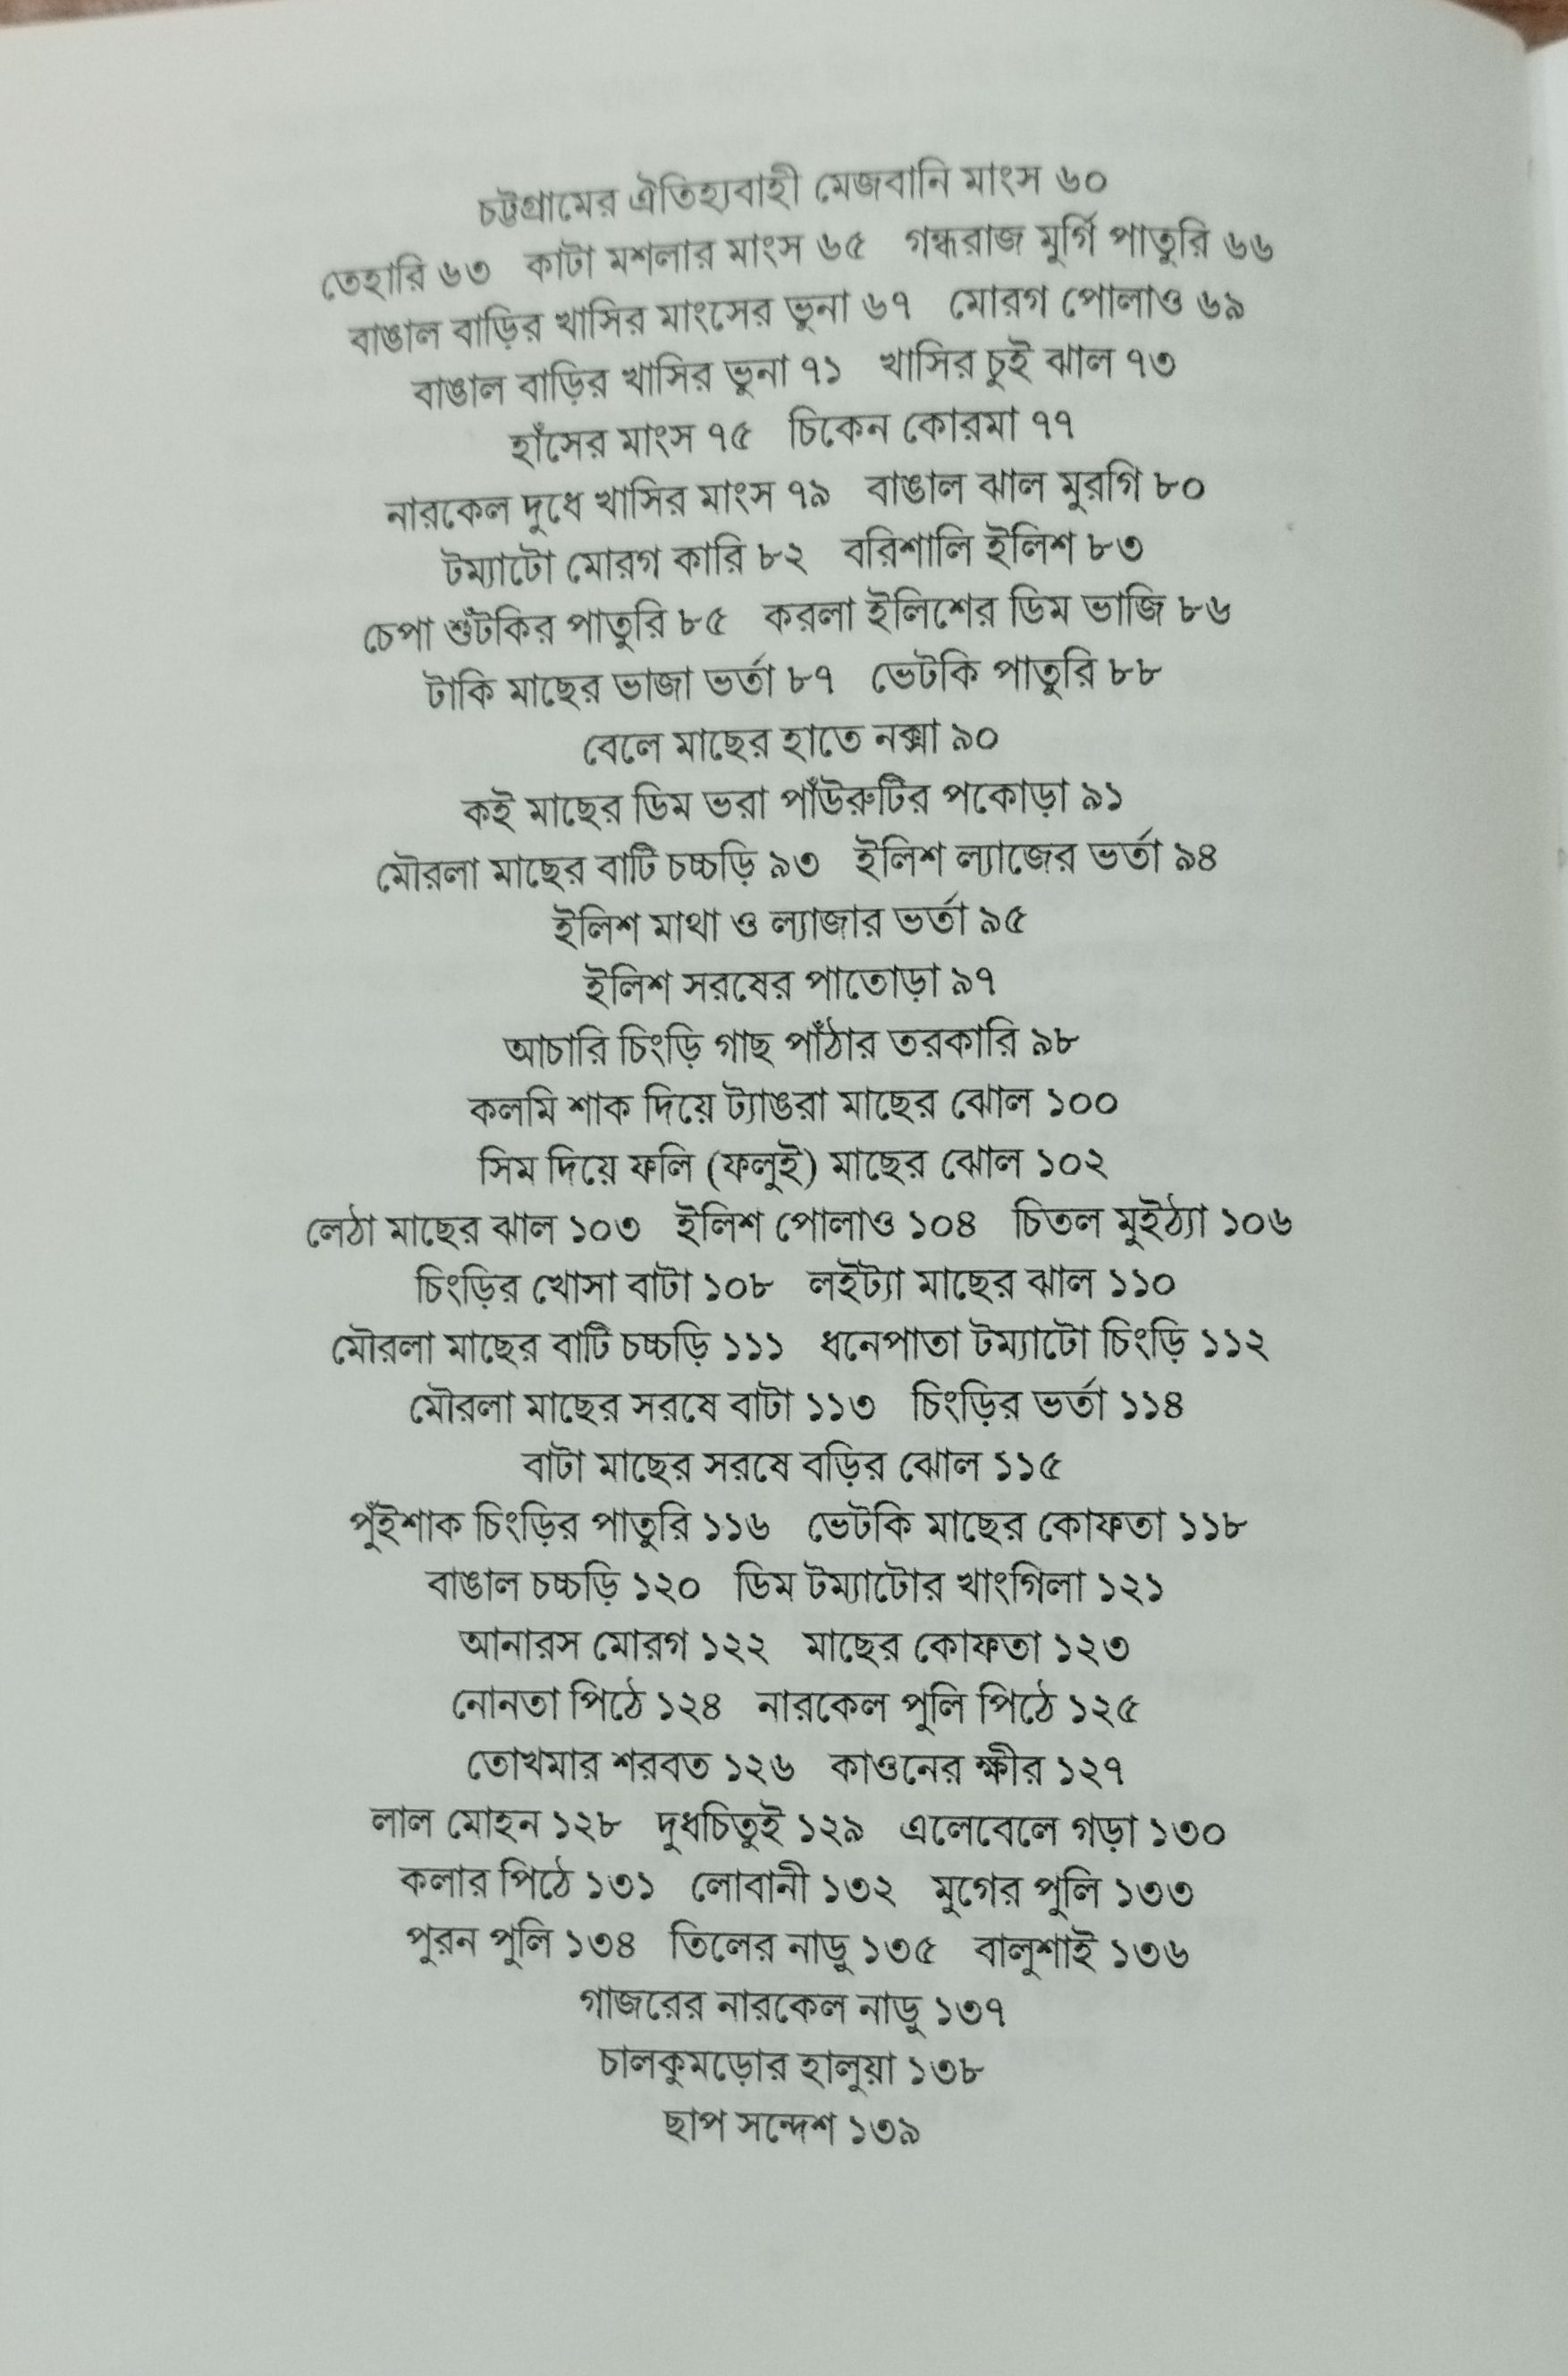 চট্টগ্রামের ঐতিহ্যবাহী মেজবানি মাংস ৬০
তেহারি ৬৩ কাটা মশলার মাংস ৬৫ গন্ধরাজ মুর্গি পাতুরি ৬৬
বাঙাল বাড়ির খাসির মাংসের ভুনা ৬৭ মোরগ পোলাও ৬৯
বাঙাল বাড়ির খাসির ভুনা ৭১ খাসির চুই ঝাল ৭৩
হাঁসের মাংস ৭৫ চিকেন কোরমা ৭৭
নারকেল দুধে খাসির মাংস ৭৯ বাঙাল ঝাল মুরগি ৮০
টম্যাটো মোরগ কারি ৮২ বরিশালি ইলিশ ৮৩
চেপা শুঁটকির পাতুরি ৮৫ করলা ইলিশের ডিম ভাজি ৮৬
টাকি মাছের ভাজা ভর্তা ৮৭ ভেটকি পাতুরি ৮৮
বেলে মাছের হাতে নক্সা ৯০
কই মাছের ডিম ভরা পাঁউরুটির পকোড়া ৯১
মৌরলা মাছের বাটি চচ্চড়ি ৯৩ ইলিশ ল্যাজের ভর্তা ৯৪
ইলিশ মাথা ও ল্যাজার ভর্তা ৯৫
ইলিশ সরষের পাতোড়া ৯৭
আচারি চিংড়ি গাছ পাঁঠার তরকারি ৯৮
কলমি শাক দিয়ে ট্যাঙরা মাছের ঝোল ১০০
সিম দিয়ে ফলি (ফলুই) মাছের ঝোল ১০২
লেঠা মাছের ঝাল ১০৩ ইলিশ পোলাও ১০৪ চিতল মুইঠ্যা ১০৬
চিংড়ির খোসা বাটা ১০৮ লইট্যা মাছের ঝাল ১১০
মৌরলা মাছের বাটি চচ্চড়ি ১১১ ধনেপাতা টম্যাটো চিংড়ি ১১২
মৌরলা মাছের সরষে বাটা ১১৩ চিংড়ির ভর্তা ১১৪
বাটা মাছের সরষে বড়ির ঝোল ১১৫
পুঁইশাক চিংড়ির পাতুরি ১১৬ ভেটকি মাছের কোফতা ১১৮
বাঙাল চচ্চড়ি ১২০ ডিম টম্যাটোর খাংগিলা ১২১
আনারস মোরগ ১২২ মাছের কোফতা ১২৩
নোনতা পিঠে ১২৪ নারকেল পুলি পিঠে ১২৫
তোখমার শরবত ১২৬ কাওনের ক্ষীর ১২৭
লাল মোহন ১২৮ দুধচিতুই ১২৯ এলেবেলে গড়া ১৩০
কলার পিঠে ১৩১ লোবানী ১৩২ মুগের পুলি ১৩৩
পুরন পুলি ১৩৪ তিলের নাড়ু ১৩৫ বালুশাই ১৩৬
গাজরের নারকেল নাড়ু ১৩৭
চালকুমড়োর হালুয়া ১৩৮
ছাপ সন্দেশ ১৩৯